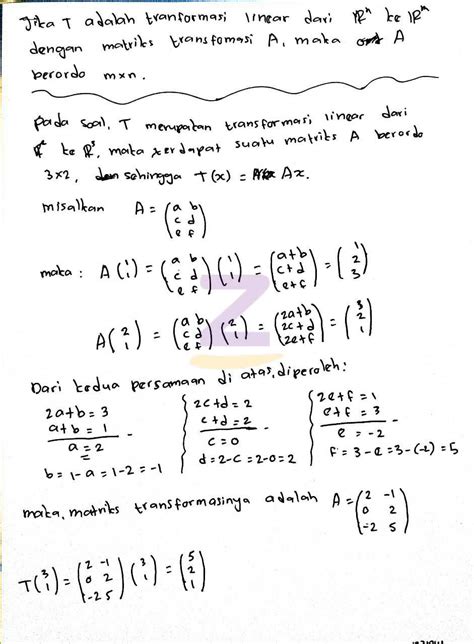 Jika T adalah tranformasi linear dari ℝⁿ ke ℝᵐ
dengan matriks transfomasi A, maka A
berordo m×n.
pada soal, T merupakan transformasi linear dari
ℝ² ke ℝ³, maka terdapat suatu matriks A berordo
3×2, sehingga T(x) = Ax.
misalkan A = (a b; c d; e f)
maka : A(1; 1) = (a b; c d; e f)(1; 1) = (a+b; c+d; e+f) = (1; 2; 3)
A(2; 1) = (a b; c d; e f)(2; 1) = (2a+b; 2c+d; 2e+f) = (3; 2; 1)
Dari kedua persamaan di atas, diperoleh:
2a+b = 3
a+b = 1 -
a = 2
b = 1-a = 1-2 = -1
2c+d = 2
c+d = 2 -
c = 0
d = 2-c = 2-0 = 2
2e+f = 1
e+f = 3 -
e = -2
f = 3-e = 3-(-2) = 5
maka, matriks transformasinya adalah A = (2 -1; 0 2; -2 5)
T(3; 1) = (2 -1; 0 2; -2 5)(3; 1) = (5; 2; 1)